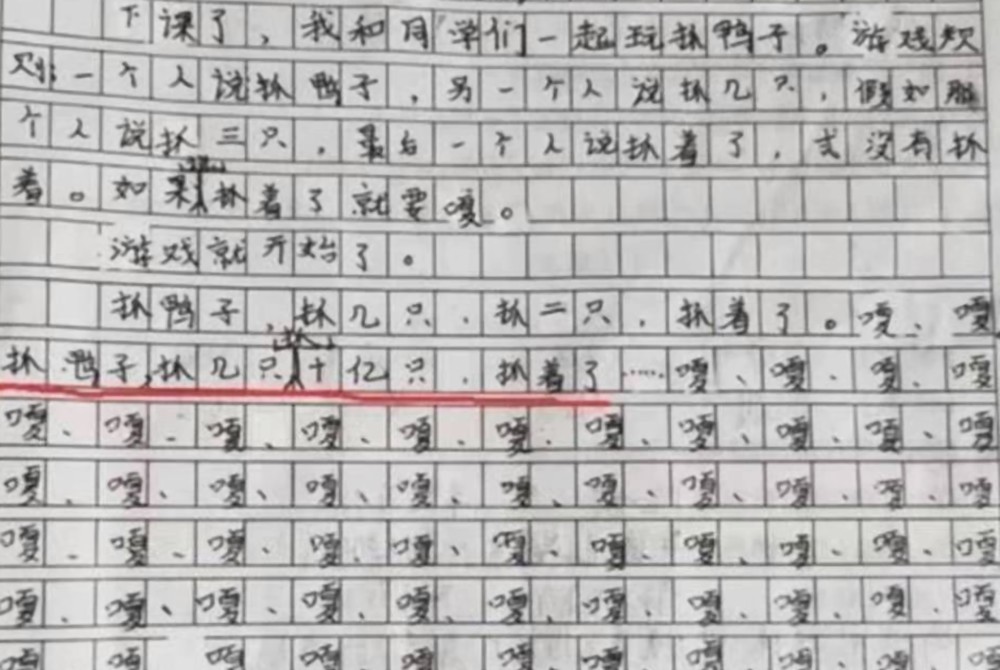 下课了，我和同学们一起玩抓鸭子。游戏规
则：一个人说抓鸭子，另一个人说抓几只，假如那
个人说抓三只，最后一个人说抓着了，或没有抓
着。如果抓着了就要嘎。
游戏就开始了。
抓鸭子 抓几只，抓二只，抓着了。嘎、嘎
抓鸭子，抓几只抓十亿只，抓着了……嘎、嘎、嘎、嘎
嘎、嘎、嘎、嘎、嘎、嘎、嘎、嘎、嘎、嘎、嘎
嘎、嘎、嘎、嘎、嘎、嘎、嘎、嘎、嘎、嘎、嘎
嘎、嘎、嘎、嘎、嘎、嘎、嘎、嘎、嘎、嘎、嘎
嘎、嘎、嘎、嘎、嘎、嘎、嘎、嘎、嘎、嘎、嘎
嘎、嘎、嘎、嘎、嘎、嘎、嘎、嘎、嘎、嘎、嘎